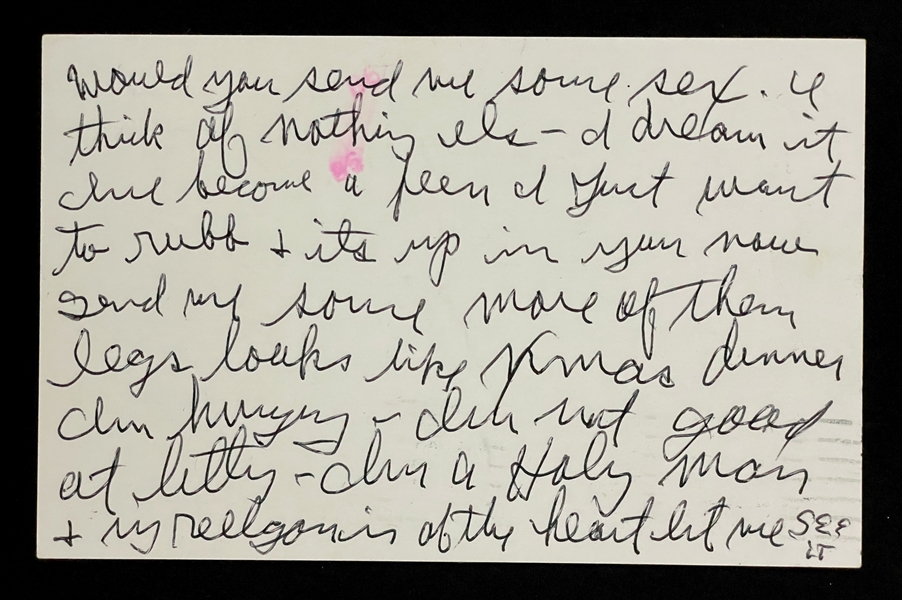 would you send me some sex. ie
thick of nothing els - I dream it
Ive become a feen I Just want
to rubb + its up in you now
send me some more of them
legs looks like Xmas dinner
Im hungry - Im not good
at
- Im a Holy man
+ my reelgon is of the heart let me SEE
IT